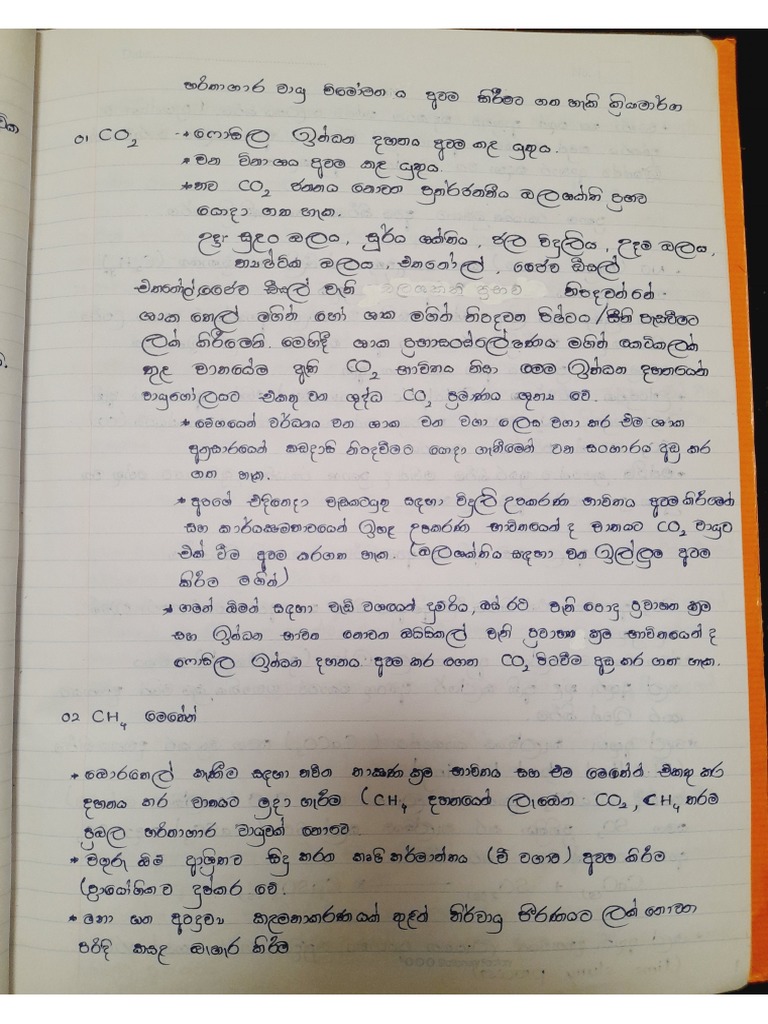 හරිතාගාර වායු විමෝචනය අවම කිරීමට ගත හැකි ක්‍රියාමාර්ග
01 CO₂ → ෆොසිල ඉන්ධන දහනය අවම කළ යුතුය.
* වන විනාශය අවම කළ යුතුය.
* නව CO₂ ජනනය නොවන පුනර්ජනනීය බලශක්ති ප්‍රභව
යොදා ගත හැක.
උදා: සුළං බලය, සූර්ය ශක්තිය, ජල විදුලිය, උදම් බලය,
න්‍යෂ්ටික බලය, එතනෝල්, ජෛව ඩීසල්
එතනෝල්, ජෛව ඩීසල් වැනි බලශක්ති ප්‍රභව නිපදවන්නේ
ශාක තෙල් මගින් හෝ ශාක මගින් නිපදවන පිෂ්ටය/සීනි පැසවීමට
ලක් කිරීමෙනි. මෙහිදී ශාක ප්‍රභාසංස්ලේෂණය මගින් කෙටිකලක්
තුළ වාතයේම ඇති CO₂ භාවිතය නිසා මෙම ඉන්ධන දහනයෙන්
වායුගෝලයට එකතු වන ශුද්ධ CO₂ ප්‍රමාණය ශුන්‍ය වේ.
* වේගයෙන් වර්ධනය වන ශාක වන වගා ලෙස වගා කර එම ශාක
අනුසාරයෙන් කඩදාසි නිපදවීමට යොදා ගැනීමෙන් වන සංහාරය අඩු කර
ගත හැක.
* අපගේ එදිනෙදා වැඩකටයුතු සඳහා විදුලි උපකරණ භාවිතය අවම කිරීමෙන්
සහ කාර්යක්ෂමතාවයෙන් ඉහළ උපකරණ භාවිතයෙන් ද වාතයට CO₂ වායුව
එක් වීම අවම කරගත හැක. (බලශක්තිය සඳහා වන ඉල්ලුම අවම
කිරීම මගින්)
* ගමන් බිමන් සඳහා වැඩි වශයෙන් දුම්රිය, බස් රථ වැනි පොදු ප්‍රවාහන ක්‍රම
සහ ඉන්ධන භාවිත නොවන බයිසිකල් වැනි ප්‍රවාහන ක්‍රම භාවිතයෙන් ද
ෆොසිල ඉන්ධන දහනය අවම කර ගෙන CO₂ පිටවීම අඩු කර ගත හැක.
02 CH₄ මෙතේන්
* බොරතෙල් කැණීම සඳහා නවීන තාක්ෂණ ක්‍රම භාවිතය සහ එම මෙතේන් එකතු කර
දහනය කර වාතයට මුදා හැරීම (CH₄ දහනයෙන් ලැබෙන CO₂, CH₄ තරම්
ප්‍රබල හරිතාගාර වායුවක් නොවේ
* වගුරු බිම් ආශ්‍රිතව සිදු කරන කෘෂි කර්මාන්තය (වී වගාව) අවම කිරීම
(ප්‍රායෝගිකව දුෂ්කර වේ.
* ඝන අපද්‍රව්‍ය කළමනාකරණයක් තුළින් නිර්වායු ජීරණයට ලක් නොවන
පරිදි කසළ බැහැර කිරීම